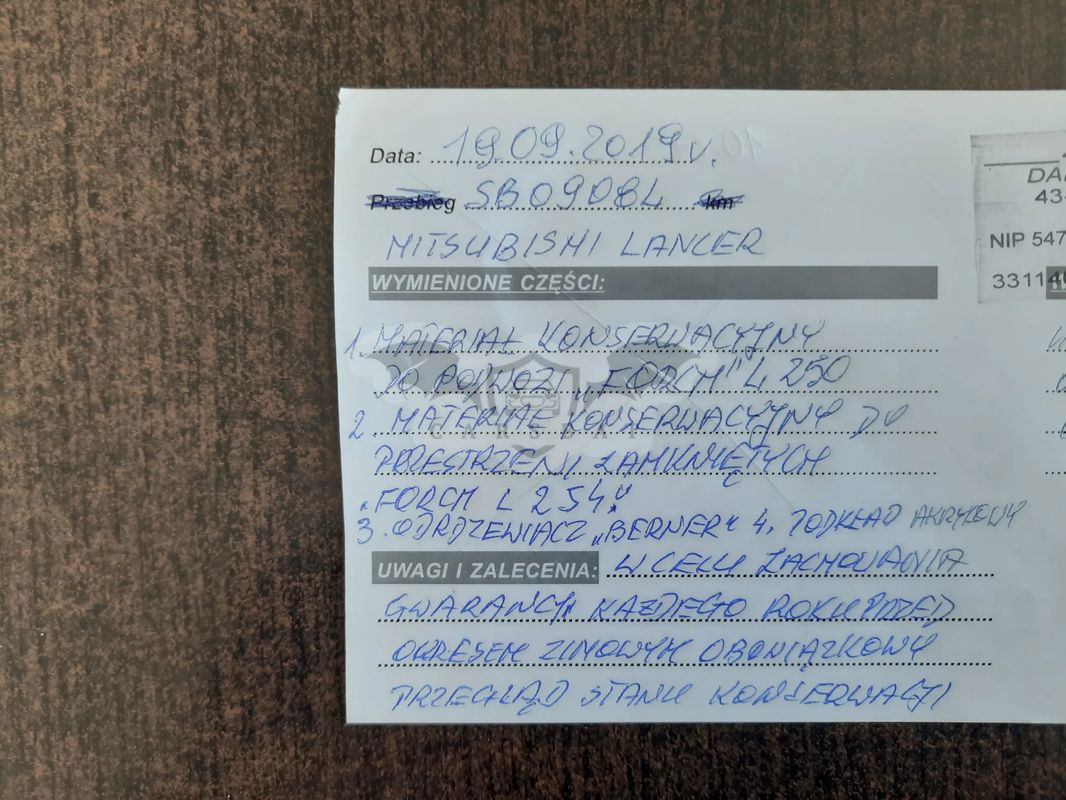 Data: 19.09.2019 r.
Przebieg SB0908L km
MITSUBISHI LANCER
WYMIENIONE CZĘŚCI:
1. MATERIAŁ KONSERWACYJNY
DO PODWOZI „FORCH" L 250
2. MATERIAŁ KONSERWACYJNY DO
PRZESTRZENI ZAMKNIĘTYCH
„FORCH L 254."
3. ODRDZEWIACZ „BERNER" 4. PODKŁAD AKRYLOWY
UWAGI I ZALECENIA: W CELU ZACHOWANIA
GWARANCJI KAŻDEGO ROKU PRZED
OKRESEM ZIMOWYM OBOWIĄZKOWY
PRZEGLĄD STANU KONSERWACJI
43-
NIP 547
3311
CARSBAT